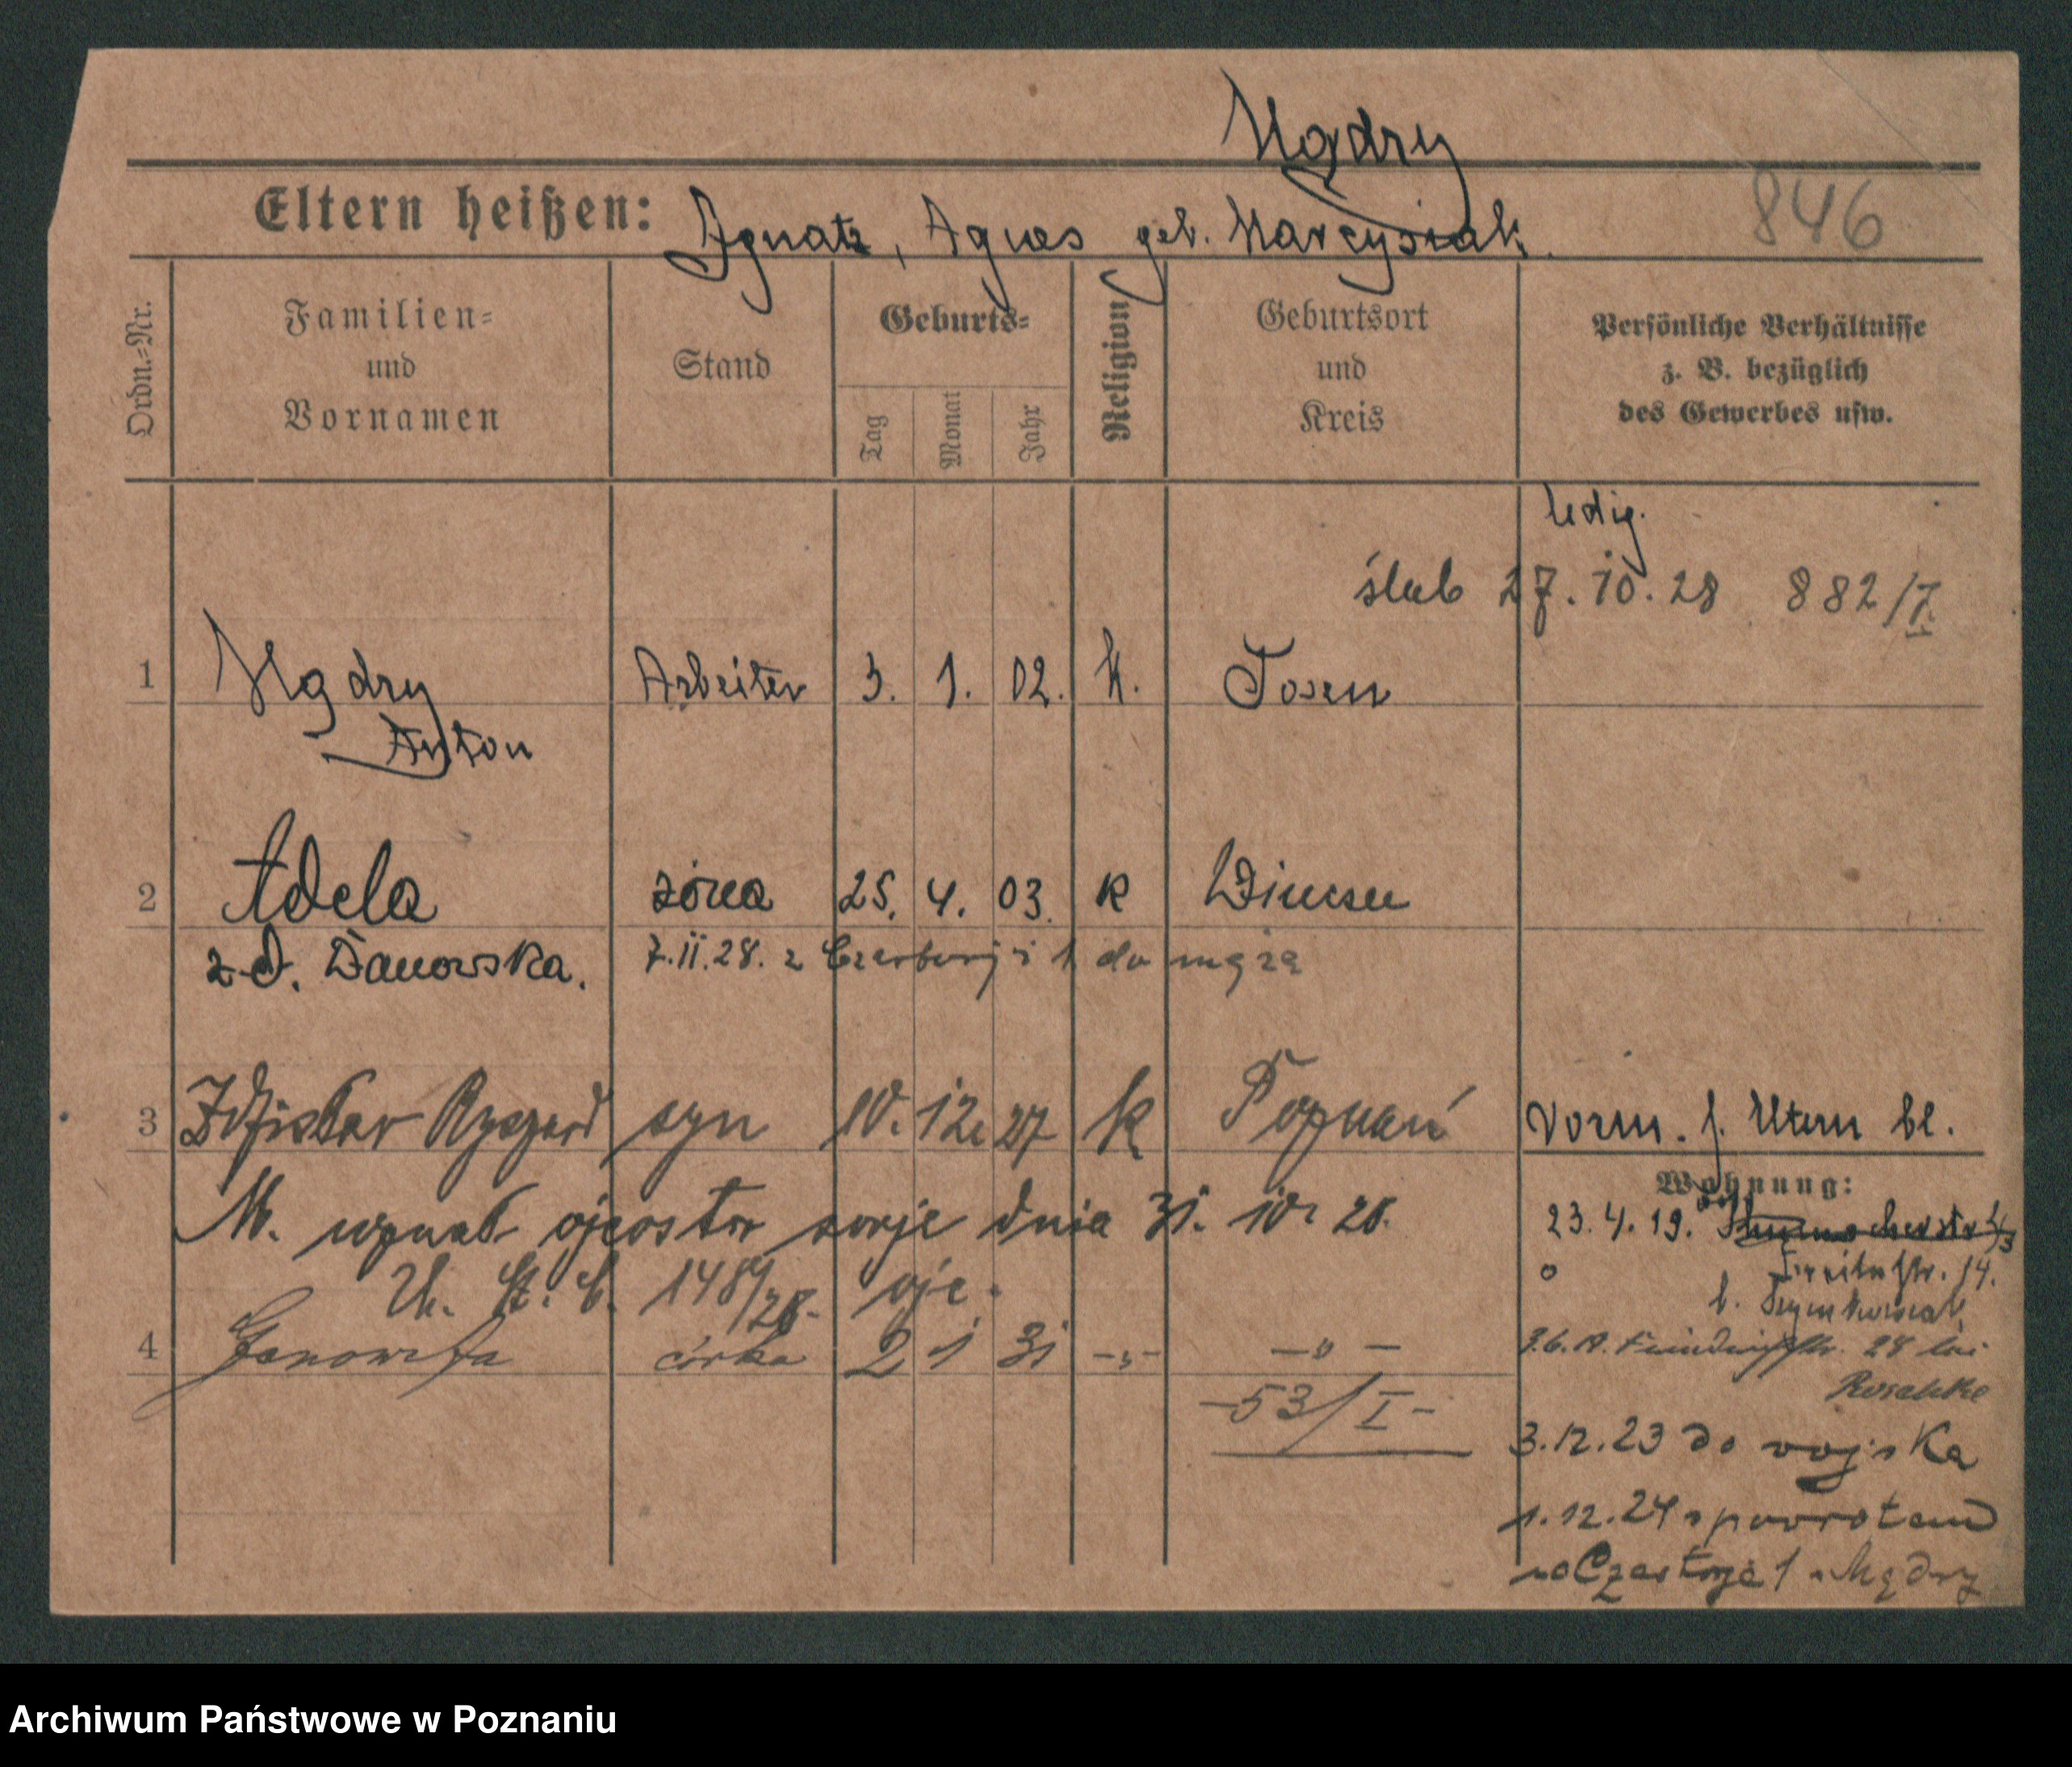 Mądry
Eltern heißen: Ignatz, Agnes geb. Marcysiak.
846
Ordn.=Nr.
Familien=
und
Vornamen
Stand
Geburts=
Tag
Monat
Jahr
Religion
Geburtsort
und
Kreis
Persönliche Verhältnisse
z. B. bezüglich
des Gewerbes usw.
ledig.
ślub 27.10.28 882/I.
1 Mądry Arbeiter 3. 1. 02. k. Posen
Anton
2 Adela żona 25. 4. 03. k
z d. Danowska. 7.11.28. z 1 do męża
3 Zdzisław Ryszard syn 10. 12. 27 k Poznań
Vorm. s. Eltern bl.
Wohnung:
M. uznał ojcostwo swoje dnia 31. 10. 28.
23.4.19.
U. St. C. 148/28. oje.
14.
b. Szymkowiak
4 Janowefa córka 2 1 31 -„- -„-
28 bei
-53/I-
3.12.23 do wojska
1.12.24 z powrotem
1 Mądry
Archiwum Państwowe w Poznaniu